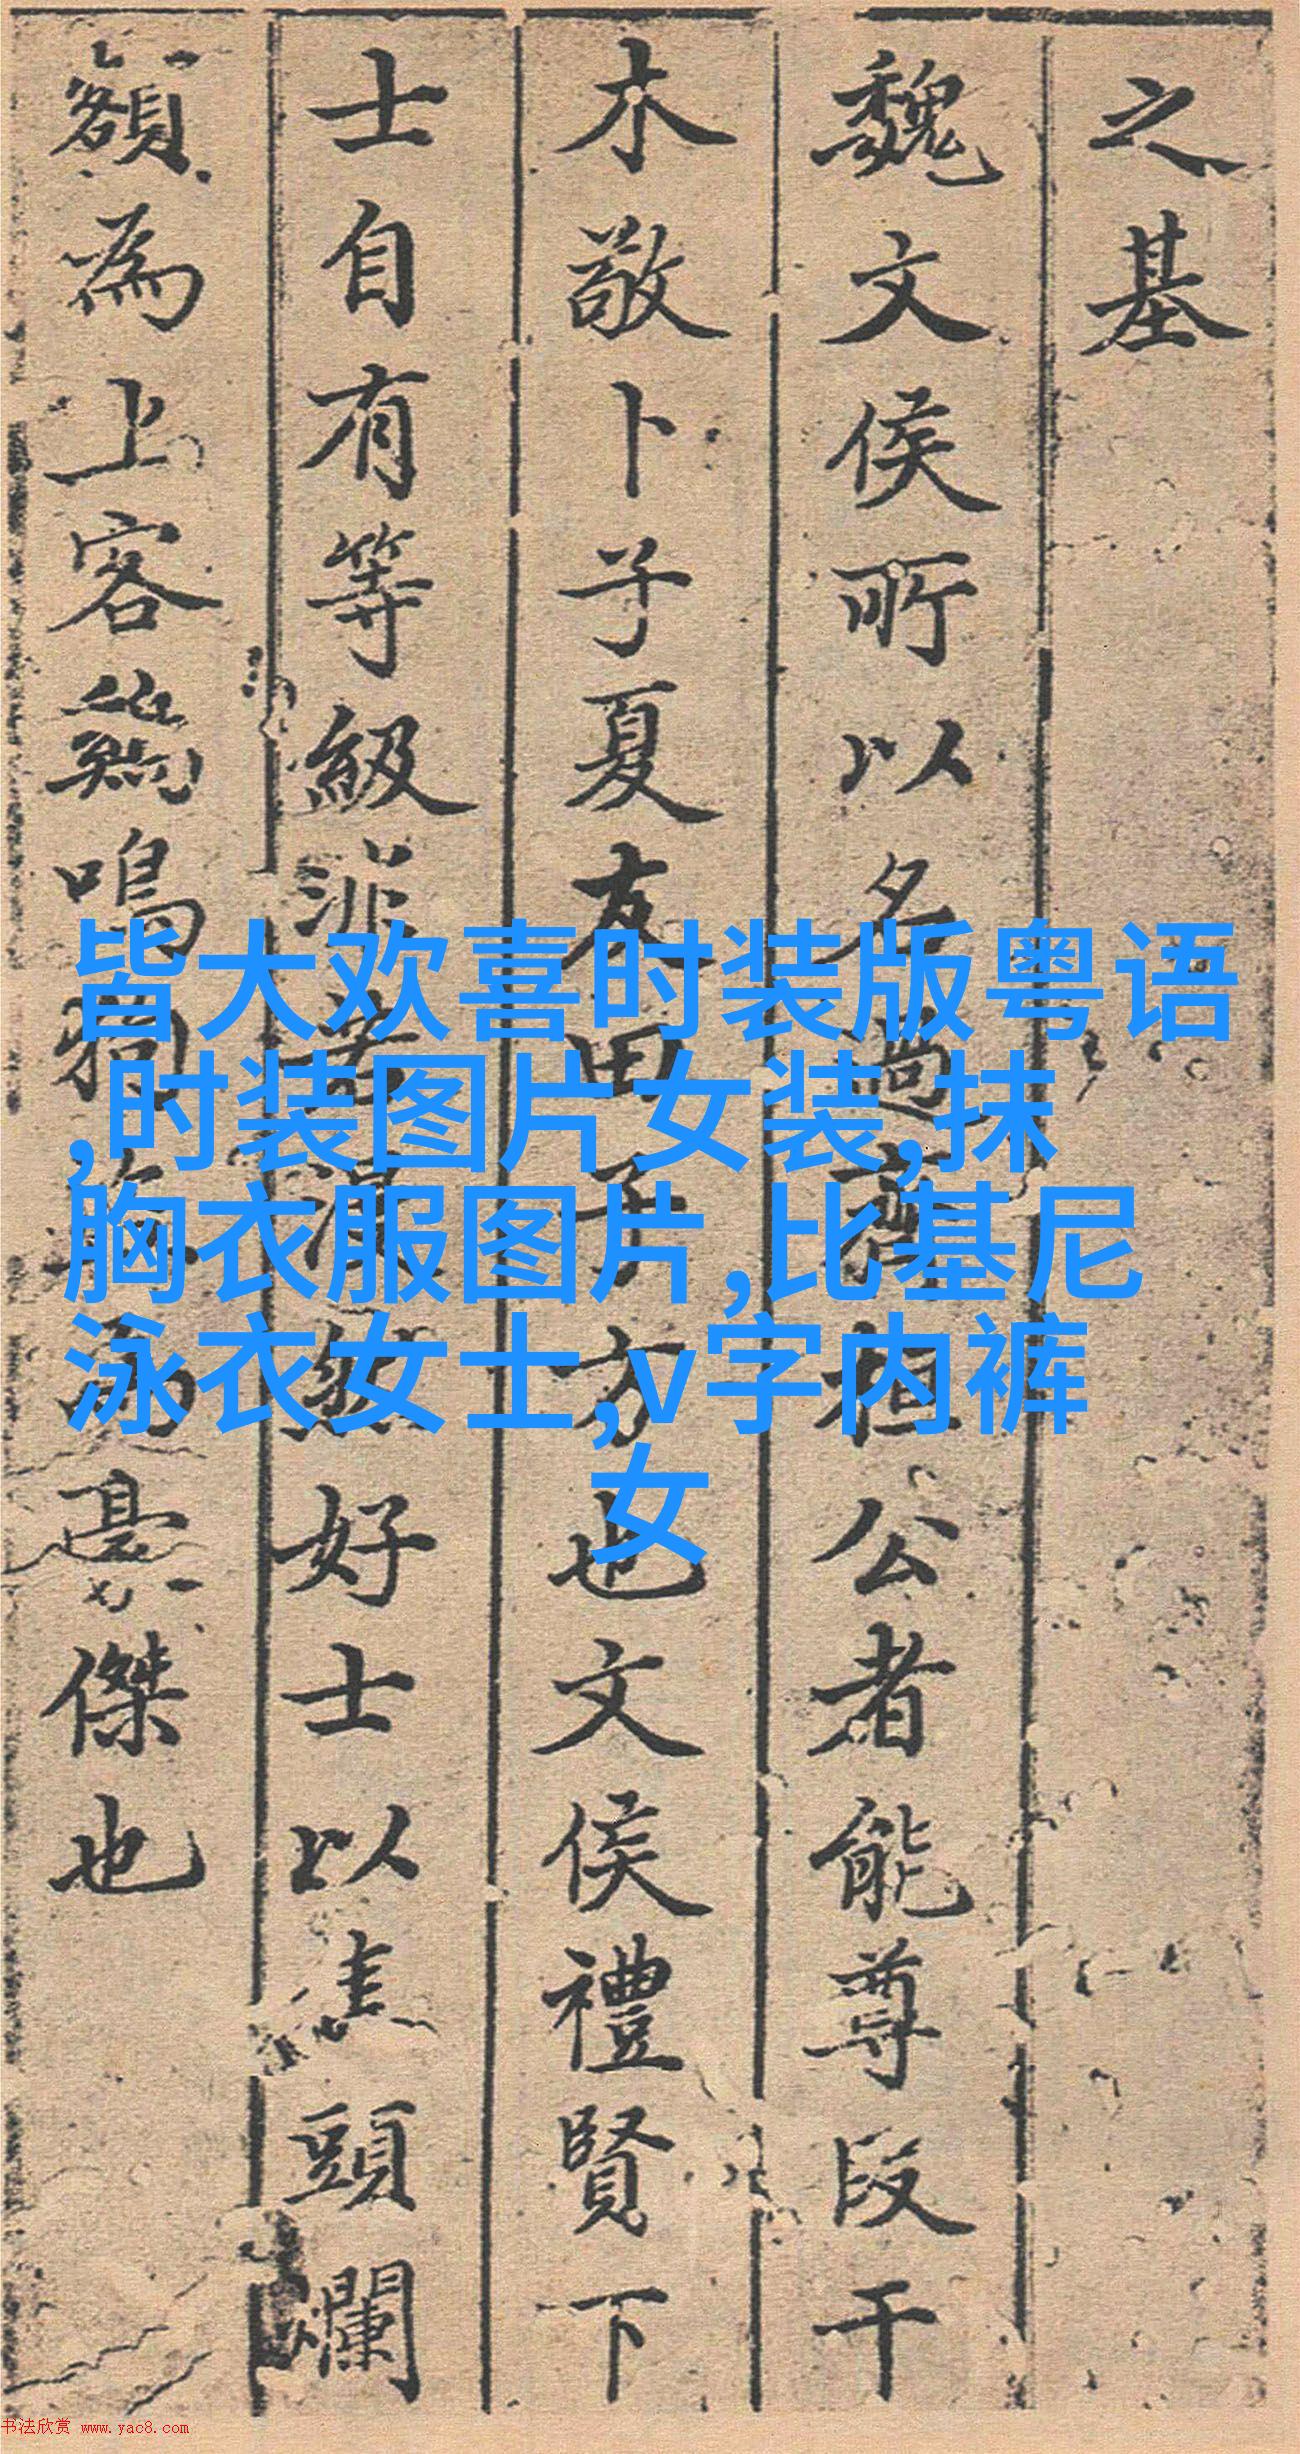 之基
魏文侯所以名過齊桓公者能尊段干
木敬卜子夏友田子方也文侯禮賢下
士自有等級非若漫然好士以焦頭爛
額為上客鷄鳴狗為豪傑也
皆大欢喜时装版粤语
,时装图片女装,抹
胸衣服图片,比基尼
泳衣女士,v字内裤
女
书法欣赏 www.yac8.com